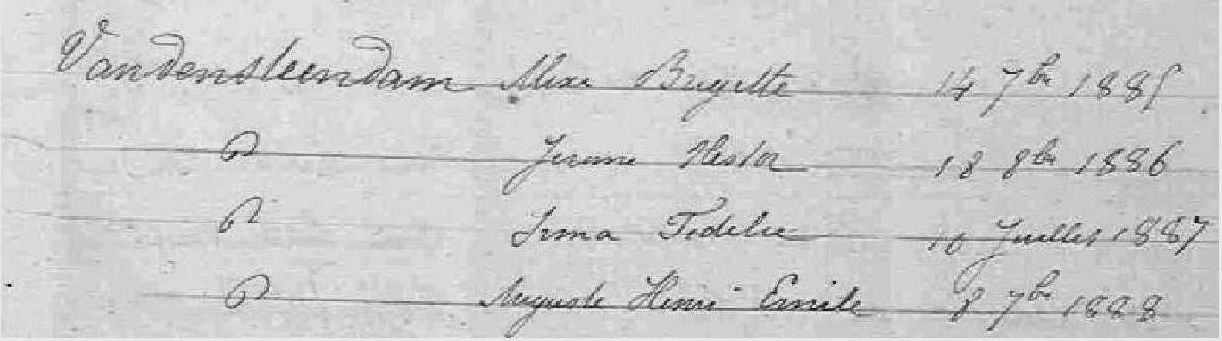 Vandensteendam Alixe Brigitte 14 7bre 1885
D Jerome Nestor 18 8bre 1886
D Irma Fidelie 10 Juillet 1887
D Auguste Henri Emile 8 7bre 1888